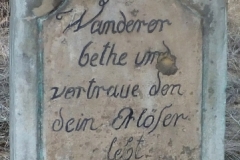 Wanderer
bethe und
vertraue den
dein Erlöser
lebt.